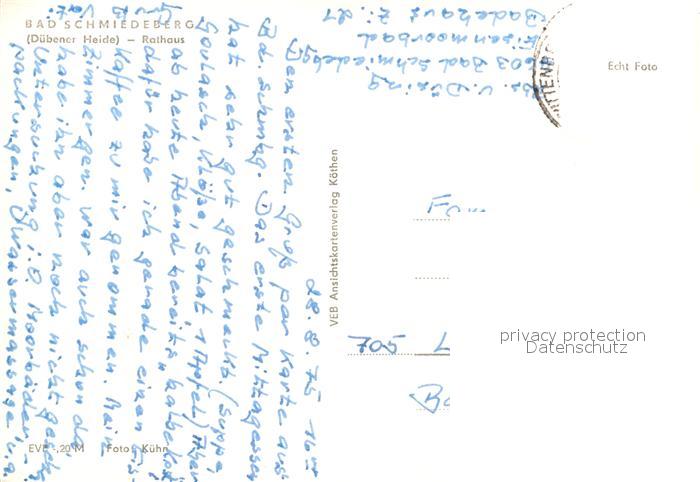 BAD SCHMIEDEBERG
(Dübener Heide) — Rathaus
28.8.75 16
Den ersten Gruß per Karte aus
Bd. Schmbg. Das erste Mittagessen
hat sehr gut geschmeckt. (Suppe,
Goulasch, Klöße, Salat 1 Apfel) Aber
ab heute Abend bereits halbe Kost
dafür habe ich gerade einen Eis-
kaffee zu mir genommen. Mein
Zimmergen. war auch schon da
habe ihn aber noch nicht gesehn.
Untersuchung i.O. Moorbäder,
packungen, Unwassermassage u.a.
Vati
EVP -,20 M Foto: Kühn
VEB Ansichtskartenverlag Köthen
Abs. V. Döring
603 Bad Schmiedeberg
Eisenmoorbad
Badehaus Zi. 27
Echt Foto
Fam
705 L
privacy protection
Datenschutz